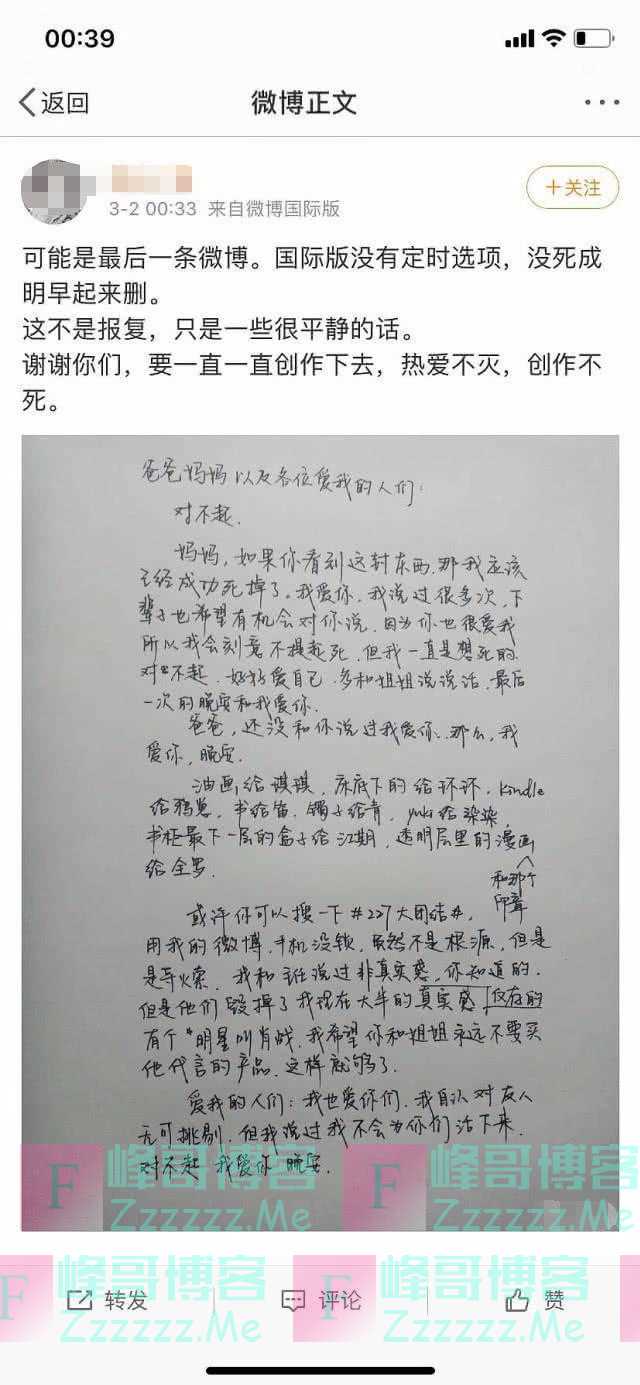 00:39
返回
微博正文
+关注
3-2 00:33 来自微博国际版
可能是最后一条微博。国际版没有定时选项，没死成
明早起来删。
这不是报复，只是一些很平静的话。
谢谢你们，要一直一直创作下去，热爱不灭，创作不
死。
爸爸妈妈以及各位爱我的人们：
对不起.
妈妈，如果你看到这封东西.那我应该
已经成功死掉了。我爱你.我说过很多次，下
辈子也希望有机会对你说.因为你也很爱我
所以我会刻意不提起死.但我一直是想死的.
对不起.好好爱自己.多和姐姐说说话.最后
一次的晚安和我爱你.
爸爸，还没和你说过我爱你..那么，我
爱你，晚安.
油画给琪琪，床底下的给环环，kindle
给鸦总，书给笛.镯子给青，yuki给染染，
书柜最下一层的盒子给江期，透明层里的漫画
和那个
印章
给全罗.
或许你可以搜一下#227大团结#，
用我的微博.手机没锁.虽然不是根源，但是
是导火索.我和 说过非真实感.你知道的.
但是他们毁掉了我现在大半的真实感.仅有的
有个"明星叫肖战.我希望你和姐姐永远不要买
他代言的产品.这样就够了.
爱我的人们：我也爱你们.我自认对友人
无可挑剔.但我说过我不会为你们活下来.
对不起 我爱你 晚安.
F 峰哥博客
Zzzzzz.Me
F 峰哥博客
Zzzzzz.Me
F 峰哥博客
Zzzzzz.Me
F 峰哥博客
Zzzzzz.Me
转发
评论
赞